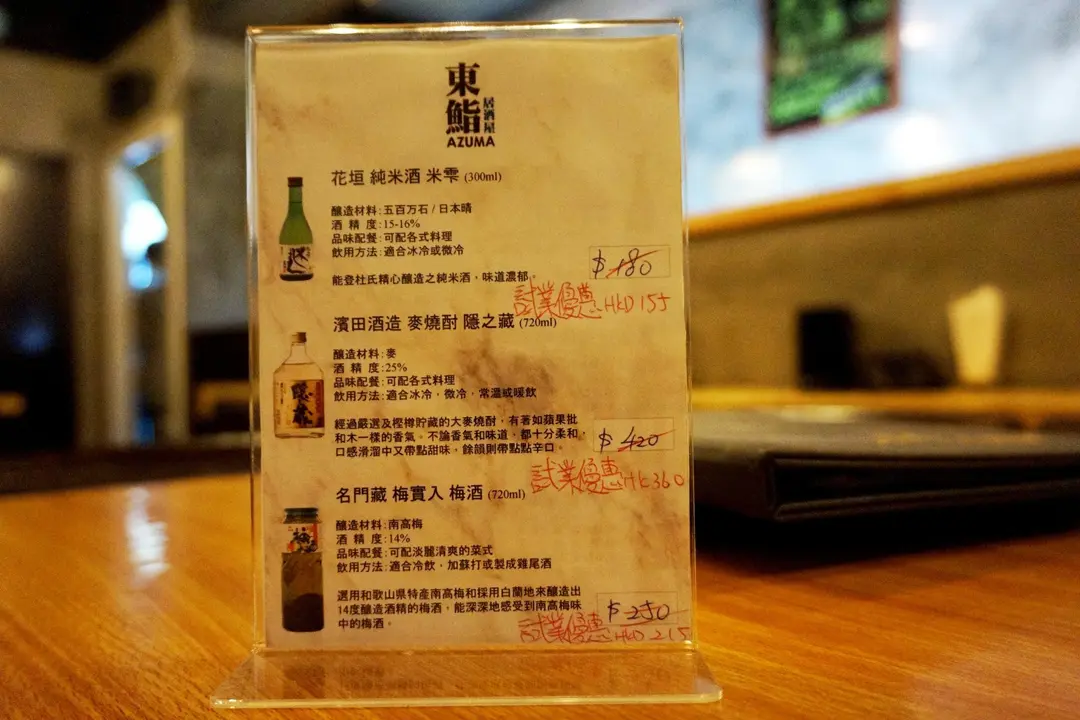 東鮨
居酒屋
AZUMA
花垣 純米酒 米雫 (300ml)
釀造材料:五百万石 / 日本晴
酒 精 度:15-16%
品味配餐:可配各式料理
飲用方法:適合冰冷或微冷
能登杜氏精心釀造之純米酒,味道濃郁。
$ 180
試業優惠 HKD 155
濱田酒造 麥燒酎 隱之藏 (720ml)
釀造材料:麥
酒 精 度:25%
品味配餐:可配各式料理
飲用方法:適合冰冷,微冷,常溫或暖飲
經過嚴選及樫樽貯藏的大麥燒酎,有著如蘋果批
和木一樣的香氣。不論香氣和味道,都十分柔和,
口感滑溜中又帶點甜味,餘韻則帶點點辛口。
$ 420
試業優惠 HK 360
名門藏 梅實入 梅酒 (720ml)
釀造材料:南高梅
酒 精 度:14%
品味配餐:可配淡麗清爽的菜式
飲用方法:適合冷飲,加蘇打或製成雞尾酒
選用和歌山県特產南高梅和採用白蘭地來釀造出
14度釀造酒精的梅酒,能深深地感受到南高梅味
中的梅酒。
$ 250
試業優惠 HKD 215